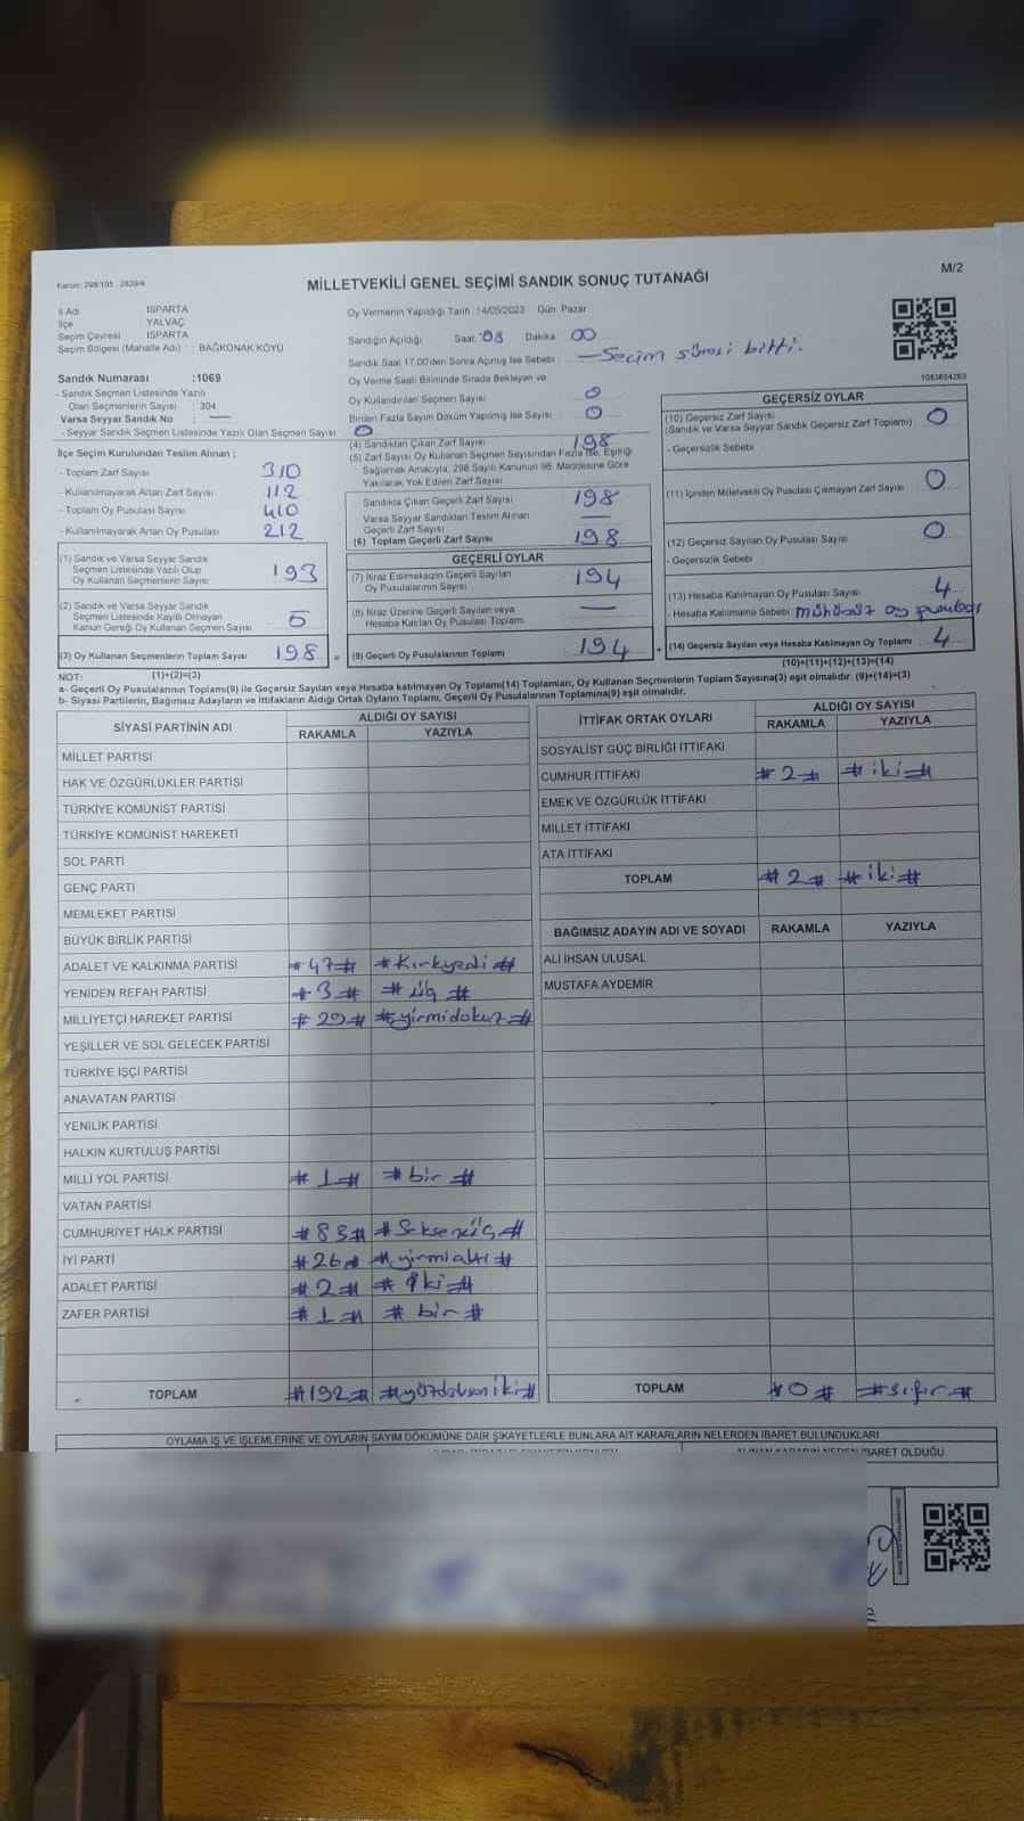 Kanun: 298/105 , 2839/4
MİLLETVEKİLİ GENEL SEÇİMİ SANDIK SONUÇ TUTANAĞI
M/2
İl Adı ISPARTA
İlçe YALVAÇ
Seçim Çevresi ISPARTA
Seçim Bölgesi (Mahalle Adı) : BAĞKONAK KÖYÜ
Sandık Numarası :1069
- Sandık Seçmen Listesinde Yazılı
Olan Seçmenlerin Sayısı : 304
Varsa Seyyar Sandık No : —
- Seyyar Sandık Seçmen Listesinde Yazılı Olan Seçmen Sayısı 0
İlçe Seçim Kurulundan Teslim Alınan ;
- Toplam Zarf Sayısı 310
- Kullanılmayarak Artan Zarf Sayısı 112
- Toplam Oy Pusulası Sayısı 410
- Kullanılmayarak Artan Oy Pusulası 212
(1) Sandık ve Varsa Seyyar Sandık
Seçmen Listesinde Yazılı Olup
Oy Kullanan Seçmenlerin Sayısı 193
(2) Sandık ve Varsa Seyyar Sandık
Seçmen Listesinde Kayıtlı Olmayan
Kanun Gereği Oy Kullanan Seçmen Sayısı 5
(3) Oy Kullanan Seçmenlerin Toplam Sayısı 198 =
Oy Vermenin Yapıldığı Tarih :14/05/2023 Gün: Pazar
Sandığın Açıldığı Saat: 08 Dakika 00
Sandık Saat 17.00'den Sonra Açılmış İse Sebebi — Seçim süresi bitti.
Oy Verme Saati Bitiminde Sırada Bekleyen ve
Oy Kullandırılan Seçmen Sayısı 0
Birden Fazla Sayım Döküm Yapılmış İse Sayısı 0
(4) Sandıktan Çıkan Zarf Sayısı 198
(5) Zarf Sayısı Oy Kullanan Seçmen Sayısından Fazla İse, Eşitliği
Sağlamak Amacıyla, 298 Sayılı Kanunun 98. Maddesine Göre
Yakılarak Yok Edilen Zarf Sayısı
Sandıkta Çıkan Geçerli Zarf Sayısı 198
Varsa Seyyar Sandıktan Teslim Alınan
Geçerli Zarf Sayısı —
(6) Toplam Geçerli Zarf Sayısı 198
GEÇERLİ OYLAR
(7) İtiraz Edilmeksizin Geçerli Sayılan
Oy Pusulalarının Sayısı 194
(8) İtiraz Üzerine Geçerli Sayılan veya
Hesaba Katılan Oy Pusulası Toplamı —
(9) Geçerli Oy Pusulalarının Toplamı 194 +
1083684263
GEÇERSİZ OYLAR
(10) Geçersiz Zarf Sayısı
(Sandık ve Varsa Seyyar Sandık Geçersiz Zarf Toplamı) 0
- Geçersizlik Sebebi
(11) İçinden Milletvekili Oy Pusulası Çıkmayan Zarf Sayısı 0
(12) Geçersiz Sayılan Oy Pusulası Sayısı 0
- Geçersizlik Sebebi
(13) Hesaba Katılmayan Oy Pusulası Sayısı 4
- Hesaba Katılmama Sebebi mühürsüz oy pusulası
(14) Geçersiz Sayılan veya Hesaba Katılmayan Oy Toplamı 4
(10)+(11)+(12)+(13)=(14)
NOT: (1)+(2)=(3)
a- Geçerli Oy Pusulalarının Toplamı(9) ile Geçersiz Sayılan veya Hesaba katılmayan Oy Toplamı(14) Toplamları, Oy Kullanan Seçmenlerin Toplam Sayısına(3) eşit olmalıdır. (9)+(14)=(3)
b- Siyasi Partilerin, Bağımsız Adayların ve İttifakların Aldığı Ortak Oyların Toplamı, Geçerli Oy Pusulalarının Toplamına(9) eşit olmalıdır.
SİYASİ PARTİNİN ADI ALDIĞI OY SAYISI
RAKAMLA YAZIYLA
MİLLET PARTİSİ
HAK VE ÖZGÜRLÜKLER PARTİSİ
TÜRKİYE KOMÜNİST PARTİSİ
TÜRKİYE KOMÜNİST HAREKETİ
SOL PARTİ
GENÇ PARTİ
MEMLEKET PARTİSİ
BÜYÜK BİRLİK PARTİSİ
ADALET VE KALKINMA PARTİSİ # 47 # # Kırkyedi #
YENİDEN REFAH PARTİSİ # 3 # # üç #
MİLLİYETÇİ HAREKET PARTİSİ # 29 # # yirmidokuz #
YEŞİLLER VE SOL GELECEK PARTİSİ
TÜRKİYE İŞÇİ PARTİSİ
ANAVATAN PARTİSİ
YENİLİK PARTİSİ
HALKIN KURTULUŞ PARTİSİ
MİLLİ YOL PARTİSİ # 1 # # bir #
VATAN PARTİSİ
CUMHURİYET HALK PARTİSİ # 83 # # Seksenüç #
İYİ PARTİ # 26 # # yirmialtı #
ADALET PARTİSİ # 2 # # iki #
ZAFER PARTİSİ # 1 # # bir #
TOPLAM # 192 # # yüzdoksaniki #
İTTİFAK ORTAK OYLARI ALDIĞI OY SAYISI
RAKAMLA YAZIYLA
SOSYALİST GÜÇ BİRLİĞİ İTTİFAKI
CUMHUR İTTİFAKI # 2 # # iki #
EMEK VE ÖZGÜRLÜK İTTİFAKI
MİLLET İTTİFAKI
ATA İTTİFAKI
TOPLAM # 2 # # iki #
BAĞIMSIZ ADAYIN ADI VE SOYADI RAKAMLA YAZIYLA
ALİ İHSAN ULUSAL
MUSTAFA AYDEMİR
TOPLAM # 0 # # sıfır #
OYLAMA İŞ VE İŞLEMLERİNE VE OYLARIN SAYIM DÖKÜMÜNE DAİR ŞİKAYETLERLE BUNLARA AİT KARARLARIN NELERDEN İBARET BULUNDUKLARI
İBARET OLDUĞU